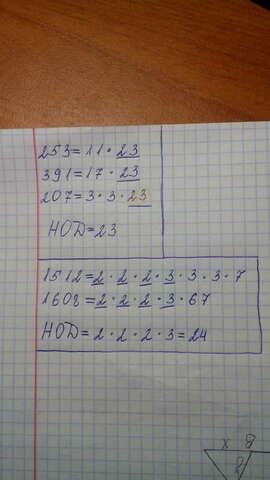 253=11·23
391=17·23
207=3·3·23
НОД=23
1512=2·2·2·3·3·3·7
1608=2·2·2·3·67
НОД=2·2·2·3=24
x